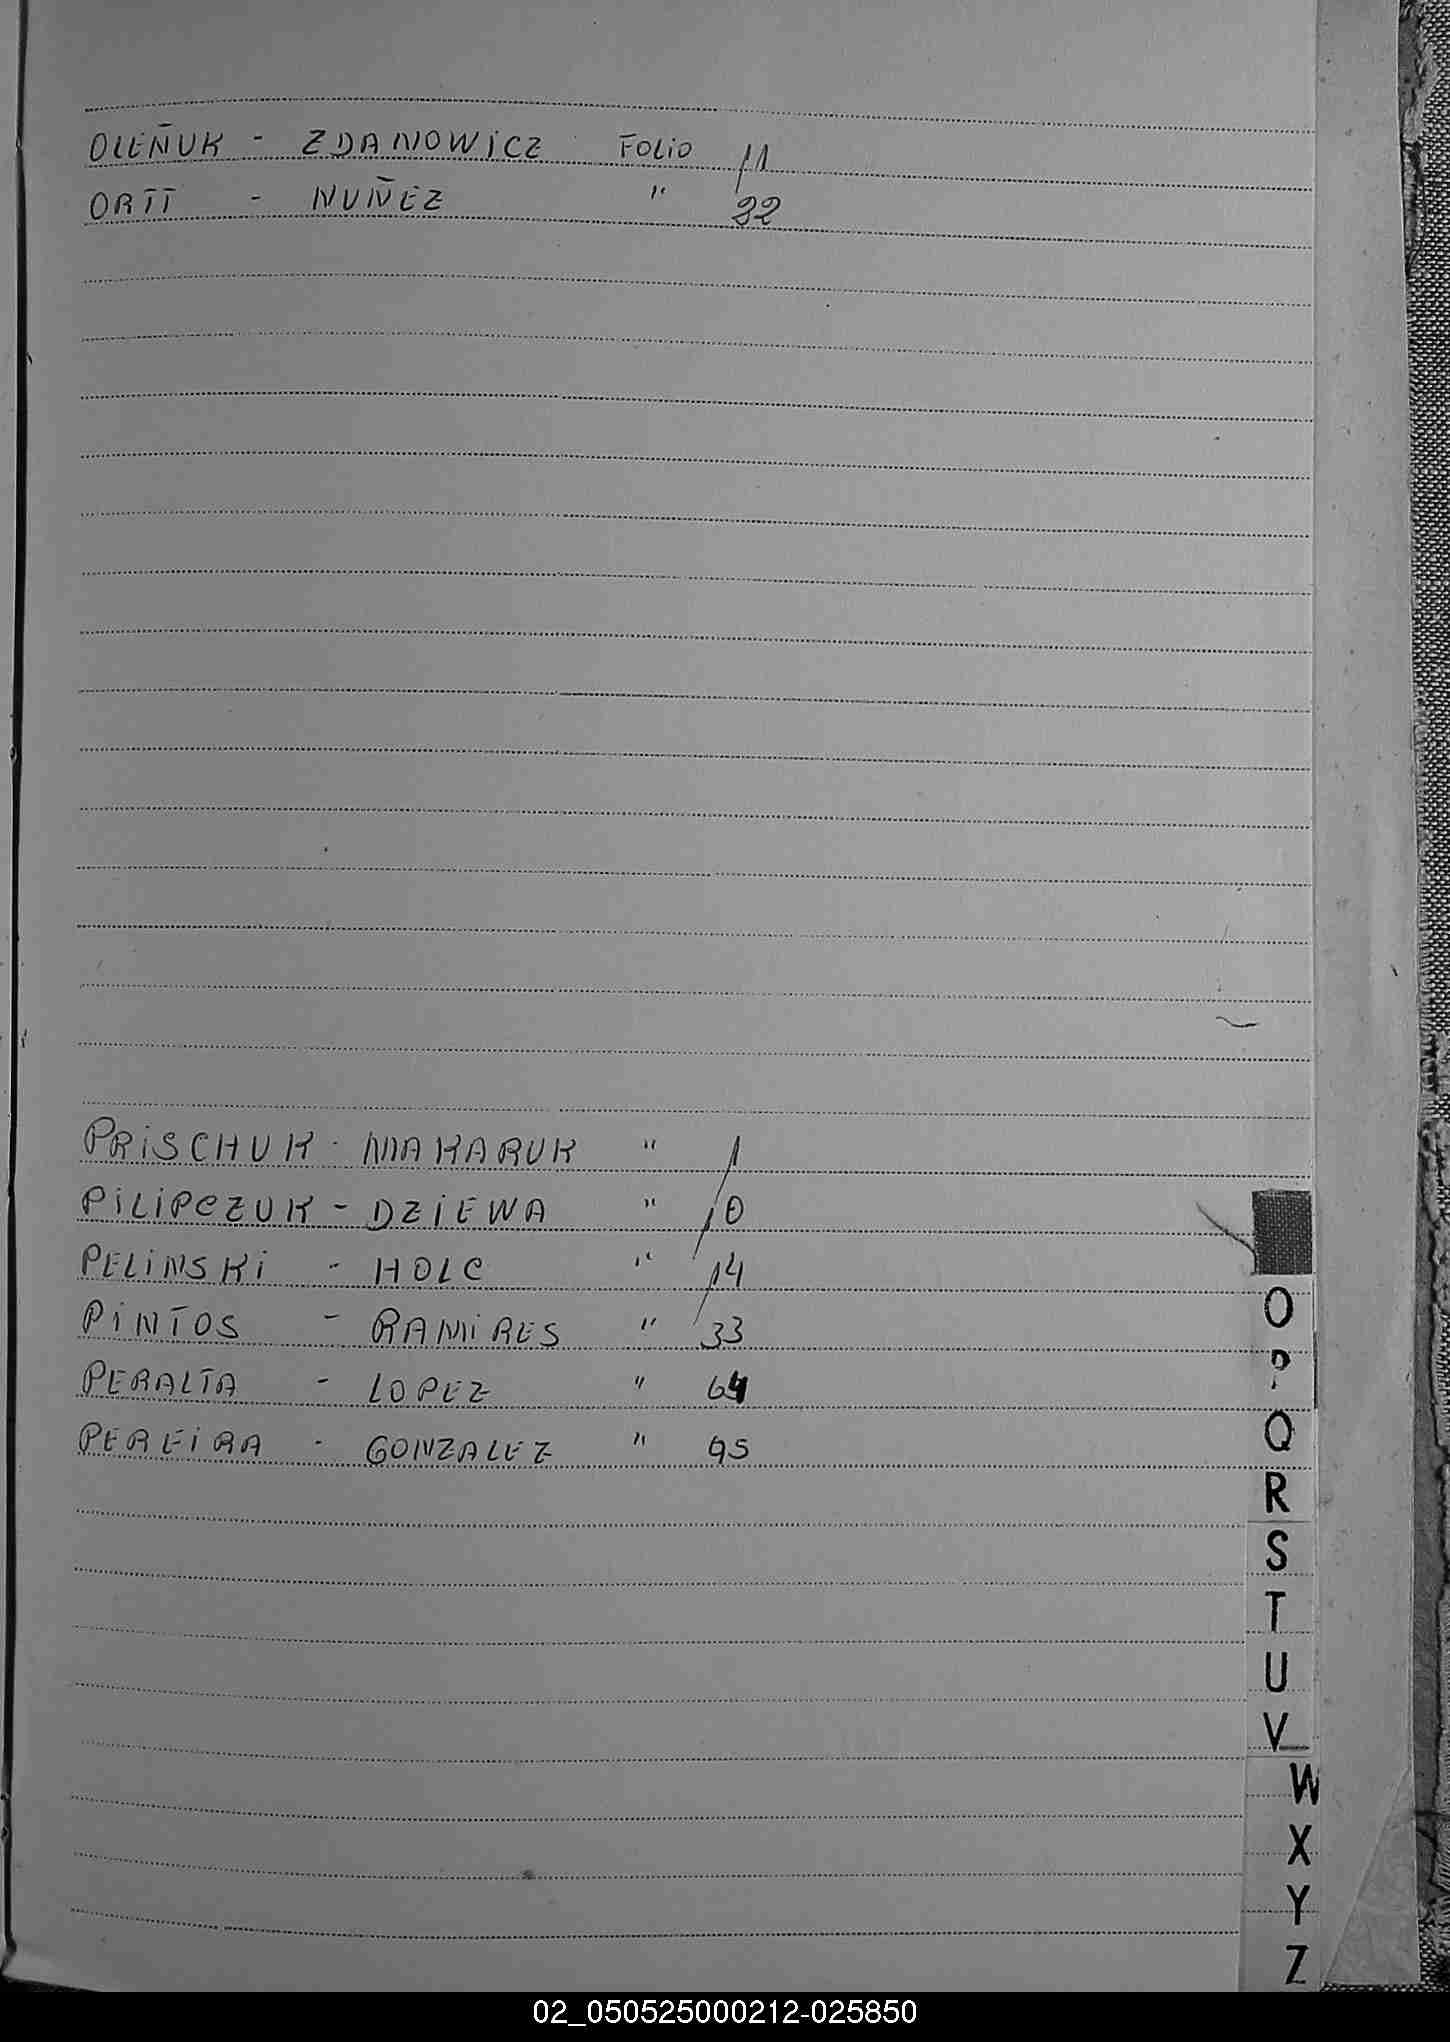 OLEÑUK - ZDANOWICZ FOLIO 11
ORTT - NUÑEZ " 22
PRISCHUK - MAKARUK " 1
PILIPCZUK - DZIEWA " 10
PELINSKI - HOLC " 14
PINTOS - RAMIRES " 33
PERALTA - LOPEZ " 64
PEREIRA - GONZALEZ " 95
O
P
Q
R
S
T
U
V
W
X
Y
Z
02_050525000212-025850